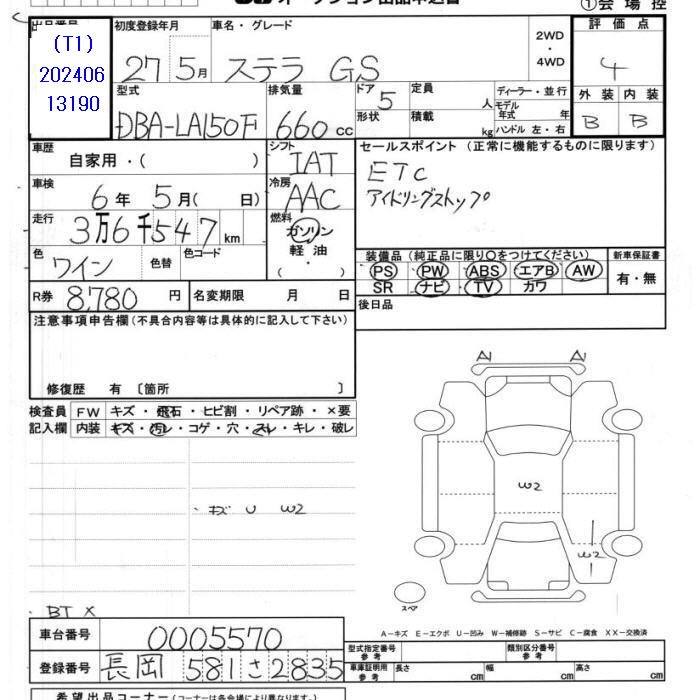 ①会場控
出品番号
(T1)
202406
13190
初度登録年月
27 5月
車名・グレード
ステラ GS
2WD
・
4WD
評価点
4
外装 内装
B B
型式
DBA-LA150F
排気量
660 cc
ドア 5
形状
定員 人
積載 kg
ディーラー・並行
モデル年式 年
ハンドル 左・右
車歴
自家用・( )
シフト
IAT
車検
6年 5月( 日)
冷房
AAC
走行
3万6千547km
燃料
ガソリン
軽油
・
( )
色
ワイン
色替
色コード
R券 8,780 円
名変期限 月 日
セールスポイント (正常に機能するものに限ります)
ETC
アイドリングストップ
装備品 (純正品に限り○をつけてください)
PS PW ABS エアB AW
SR ナビ TV カワ
新車保証書
有・無
後日品
注意事項申告欄(不具合内容等は具体的に記入して下さい)
修復歴 有 〔箇所 〕
検査員
記入欄
FW キズ・飛石・ヒビ割・リペア跡・×要
内装 キズ・汚レ・コゲ・穴・スレ・キレ・破レ
・キズ U W2
・BT X
A1 A1
W2
W2
スペア
A-キズ E-エクボ U-凹み W-補修跡 S-サビ C-腐食 XX-交換済
車台番号 0005570
登録番号 長岡 581 さ 2835
型式指定番号
参考
類別区分番号
車庫証明用
参考
長さ cm
幅 cm
高さ cm
希望出品コーナー (コーナーは各会場により異なります。)